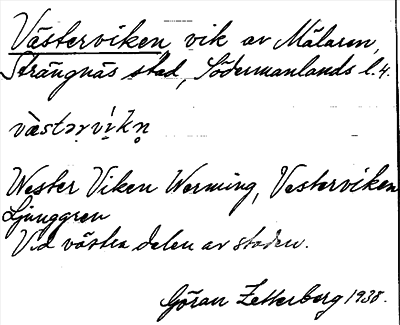 Västerviken, vik av Mälaren,
Strängnäs stad, Södermanlands l. 4.
västərvi̍kn̥
Wester Viken Werming, Vesterviken
Ljunggren
Vid västra delen av staden.
Göran Zetterberg 1938.